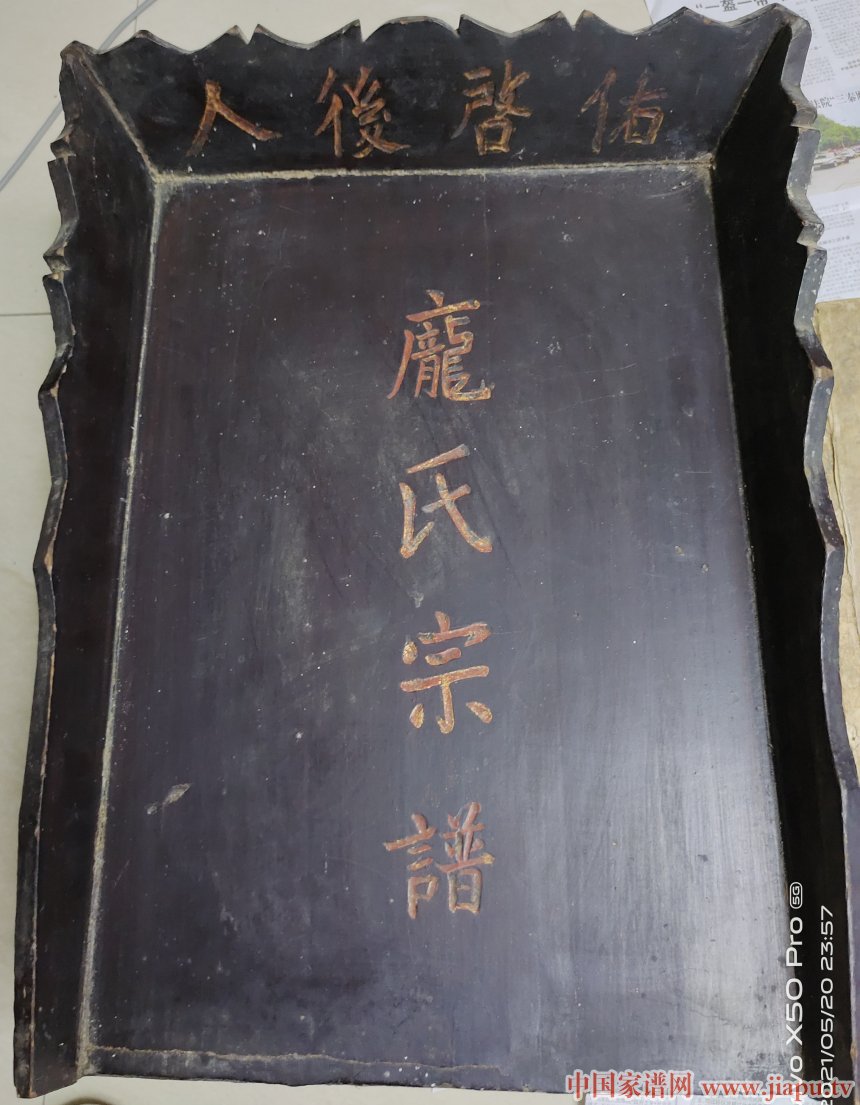 佑啓後人
龐氏宗譜
vo X50 Pro 5G
2021/05/20 23:57
中国家谱网 www.jiapu.tv